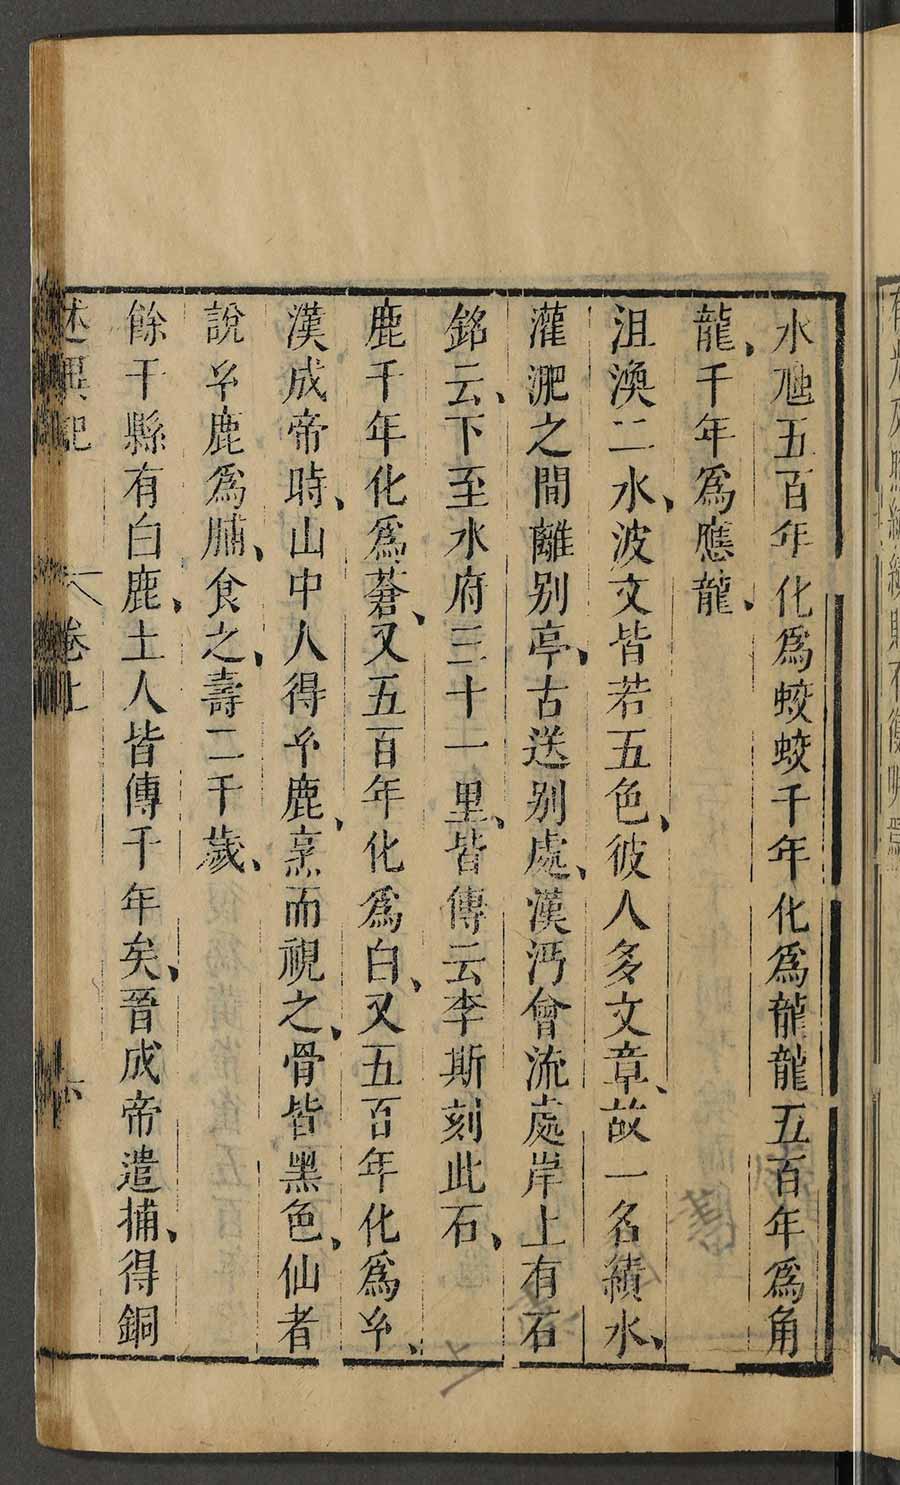 水虺五百年化為蛟蛟千年化為龍龍五百年為角
龍、千年為應龍、
沮渙二水、波文皆若五色、彼人多文章、故一名績水、
灌淝之間離别亭、古送别處、漢沔會流處岸上有石
銘云、下至水府三十一里、皆傳云李斯刻此石、
鹿千年化為蒼、又五百年化為白、又五百年化為𤣥、
漢成帝時、山中人得𤣥鹿、烹而視之、骨皆黑色、仙者
說𤣥鹿為脯、食之、壽二千歲、
餘干縣有白鹿、土人皆傳千年矣、晉成帝遣捕、得銅
述異記 卷上 六